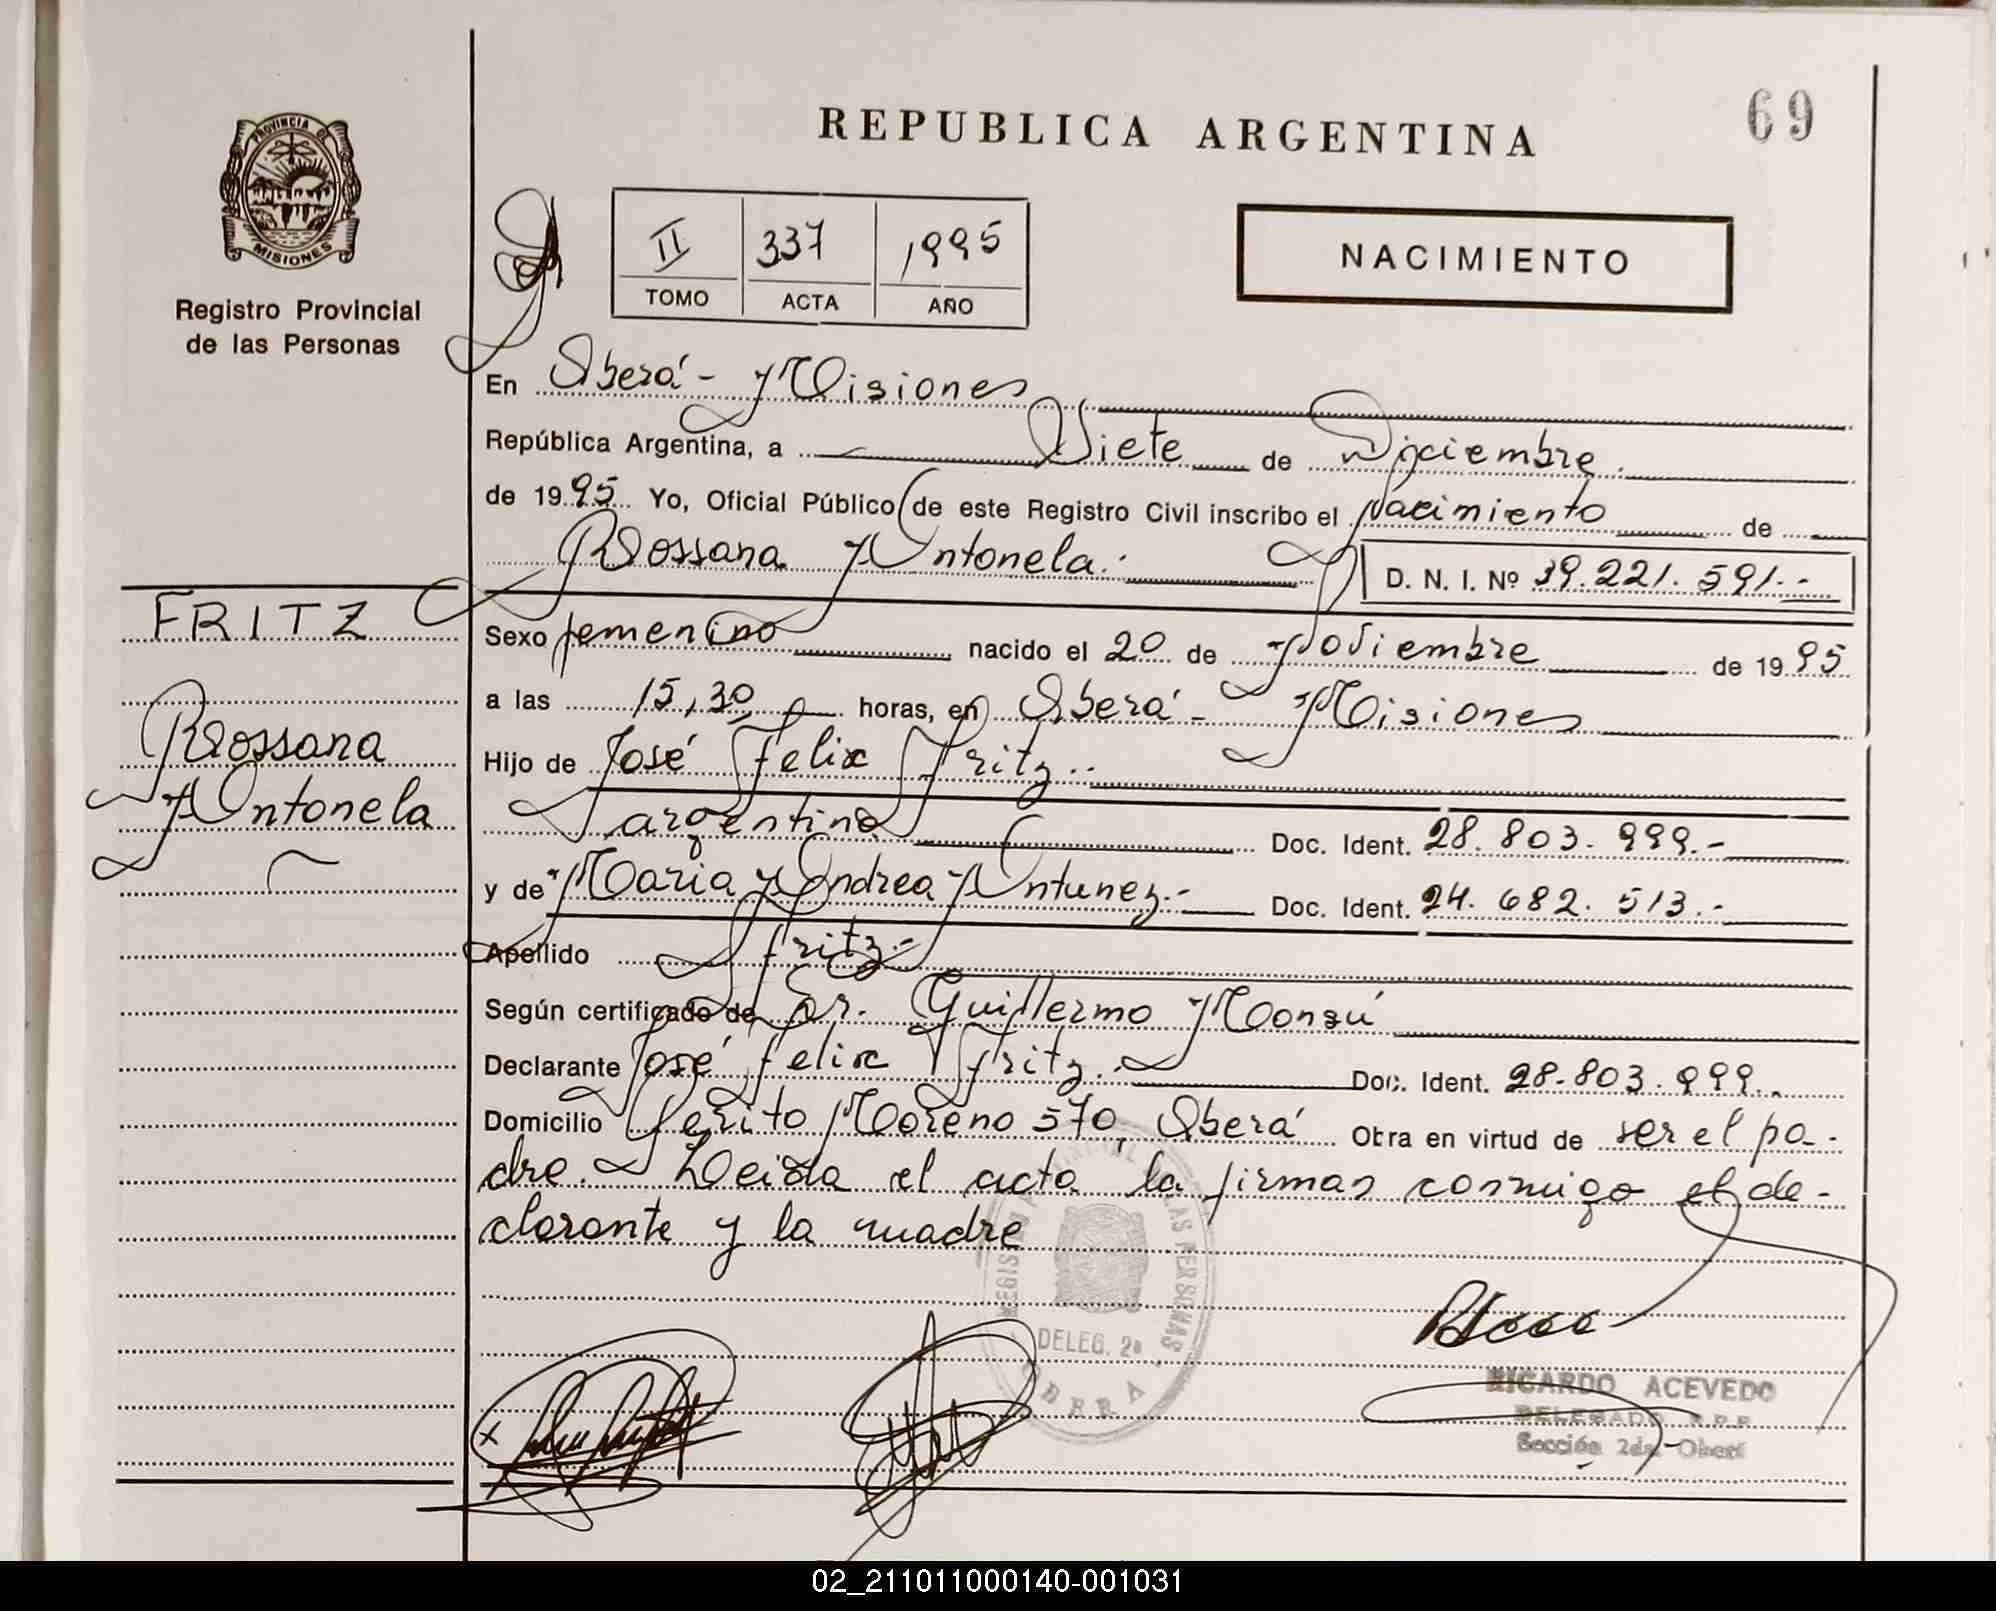 69
REPUBLICA ARGENTINA
PROVINCIA DE
MISIONES
Registro Provincial
de las Personas
II 337 1995
TOMO ACTA AÑO
NACIMIENTO
En Oberá - Misiones
República Argentina, a Siete de Diciembre
de 1995 Yo, Oficial Público de este Registro Civil inscribo el Nacimiento de
Rossana Antonela.- D. N. I. Nº 39.221.591.-
FRITZ
Rossana
Antonela
Sexo femenino nacido el 20 de Noviembre de 1995
a las 15,30 horas, en Oberá - Misiones
Hijo de José Felix Fritz.-
argentino Doc. Ident. 28.803.999.-
y de Maria Andrea Antunez.- Doc. Ident. 24.682.513.-
Apellido Fritz.-
Según certificado de Dr. Guillermo Monzú
Declarante José Felix Fritz.- Doc. Ident. 28.803.999.
Domicilio Perito Moreno 570, Oberá Obra en virtud de ser el pa-
dre. Leida el acta la firman conmigo el de-
clarante y la madre
REGISTRO PROVINCIAL DE LAS PERSONAS
DELEG. 2ª
OBERA
RICARDO ACEVEDO
DELEGADO R.P.P.
Sección 2da-Oberá
02_211011000140-001031